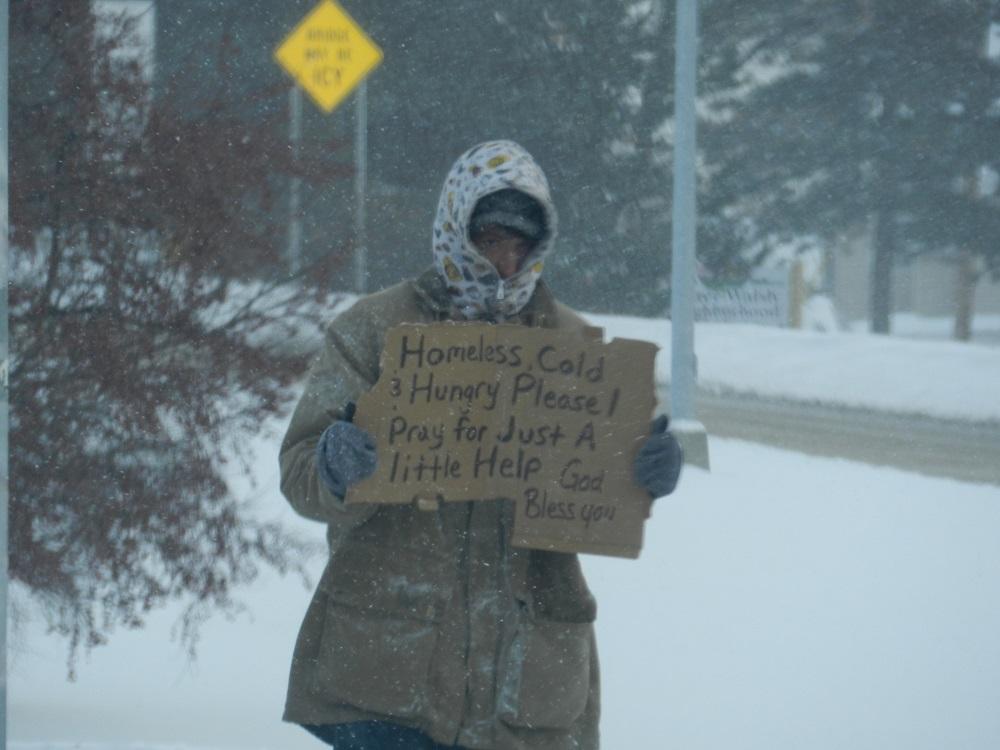 BRIDGE
MAY BE
ICY
Homeless, Cold
& Hungry Please!
Pray for Just A
little Help God
Bless you
Walsh